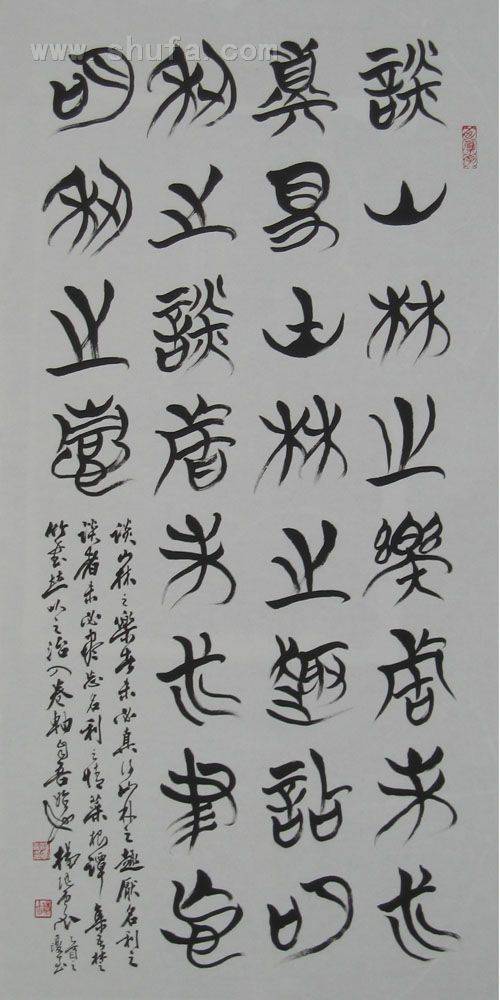 www.shufa.com
談山林之樂者未必
真得山林之趣厭名
利之談者未必盡忘
名利之情
談山林之樂者未必真得山林之趣厭名利之
談者未必盡忘名利之情菜根譚 集
竹書 以之 入卷軸自吾